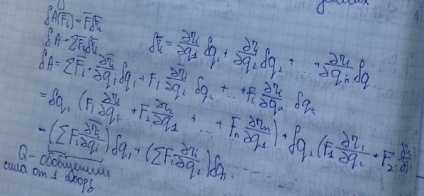 δA(F̄₁) = F̄δr̄₁
δA = ΣF̄ᵢδr̄ᵢ   δr̄ᵢ = ∂r̄ᵢ/∂q₁ δq₁ + ∂r̄ᵢ/∂q₂ δq₂ + … + ∂r̄ᵢ/∂qₙ δq
δA = ΣF̄₁ · ∂r̄ᵢ/∂q₁ δq₁ + F₁ ∂r̄ᵢ/∂q₂ δq₂ + … + F₁ ∂r̄ᵢ/∂qₙ δqₙ
= δq₁ (F₁ ∂r̄₁/∂q₁ + F₂ ∂r̄₂/∂q₁ + … + Fₙ ∂r̄ₙ/∂q₁) + δq₂ (F₁ ∂r̄₁/∂q₂ + F₂
= (ΣFᵢ ∂r̄ᵢ/∂q₁) δq₁ + (ΣFᵢ ∂r̄ᵢ/∂q₂) δq₂ …
Q - обобщенная
сила от 1